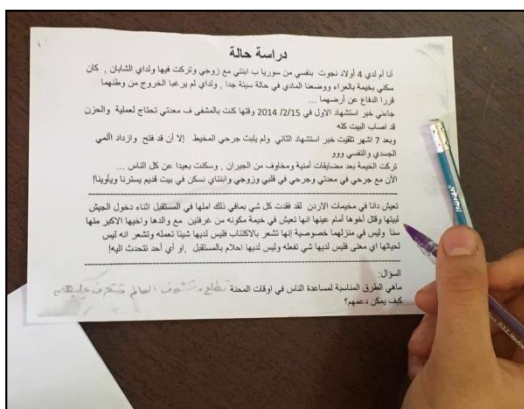 دراسة حالة
أنا أم لدي 4 أولاد نجوت بنفسي من سوريا ب ابنتي مع زوجي وتركت فيها ولداي الشابان , كان
سكني بخيمة بالعراء ووضعنا المادي في حالة سيئة جدا , ولداي لم يرغبا الخروج من وطنهما
قررا الدفاع عن أرضهما ...
جاءني خبر استشهاد الاول في 2/15/ 2014 وقتها كنت بالمشفى ف معدتي تحتاج لعملية والحزن
قد اصاب البيت كله
وبعد 7 اشهر تلقيت خبر استشهاد الثاني ولم يلبث جرحي المخيط إلا أن قد فتح وازداد األمي
الجسدي والنفسي ووو
تركت الخيمة بعد مضايقات أمنية ومخاوف من الجيران , وسكنت بعيدا عن كل الناس ...
الآن مع جرحي في معدتي وجرحي في قلبي وزوجي وابنتاي نسكن في بيت قديم يسترنا ويأوينا!
تعيش دانا في مخيمات الاردن لقد فقدت كل شي بمافي ذلك املها في المستقبل اثناء دخول الجيش
لبيتها وقتل أخوها أمام عينها انها تعيش في خيمة مكونه من غرفتين مع والدها واخيها الاكبر منها
سنا وليس في منزلهما خصوصية إنها تشعر بالاكتئاب فليس لديها شيئا تعمله وتشعر انه ليس
لحياتها اي معنى فليس لديها شي تفعله وليس لديها احلام بالمستقبل ,او أي أحد تتحدث اليه!
السؤال:
ماهي الطرق المناسبة لمساعدة الناس في اوقات المحنة
كيف يمكن دعمهم؟